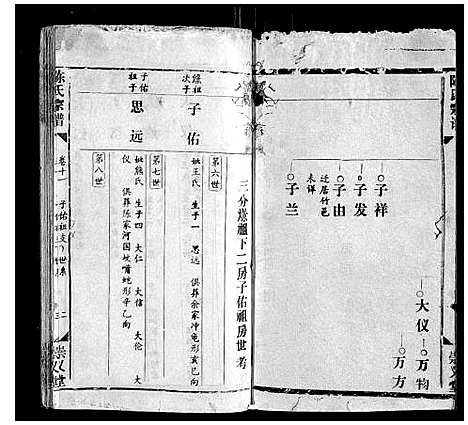 陈氏宗谱
子祥
子发
子由
迁居竹邑
未详
子兰
大仪
万物
万方
崇义堂
三分㷆祖下二房子佑祖房世考
第六世
祖次子
子佑
妣王氏 生子一 思远 俱葬余家冲龟形亥巳向
第七世
子佑祖子
思远
妣熊氏 生子四 大仁 大信 大伦 大仪 俱葬陈家河国坟嘴蛇形辛乙向
第八世
陈氏宗谱
卷十一
子佑祖支下世系
二三
崇义堂